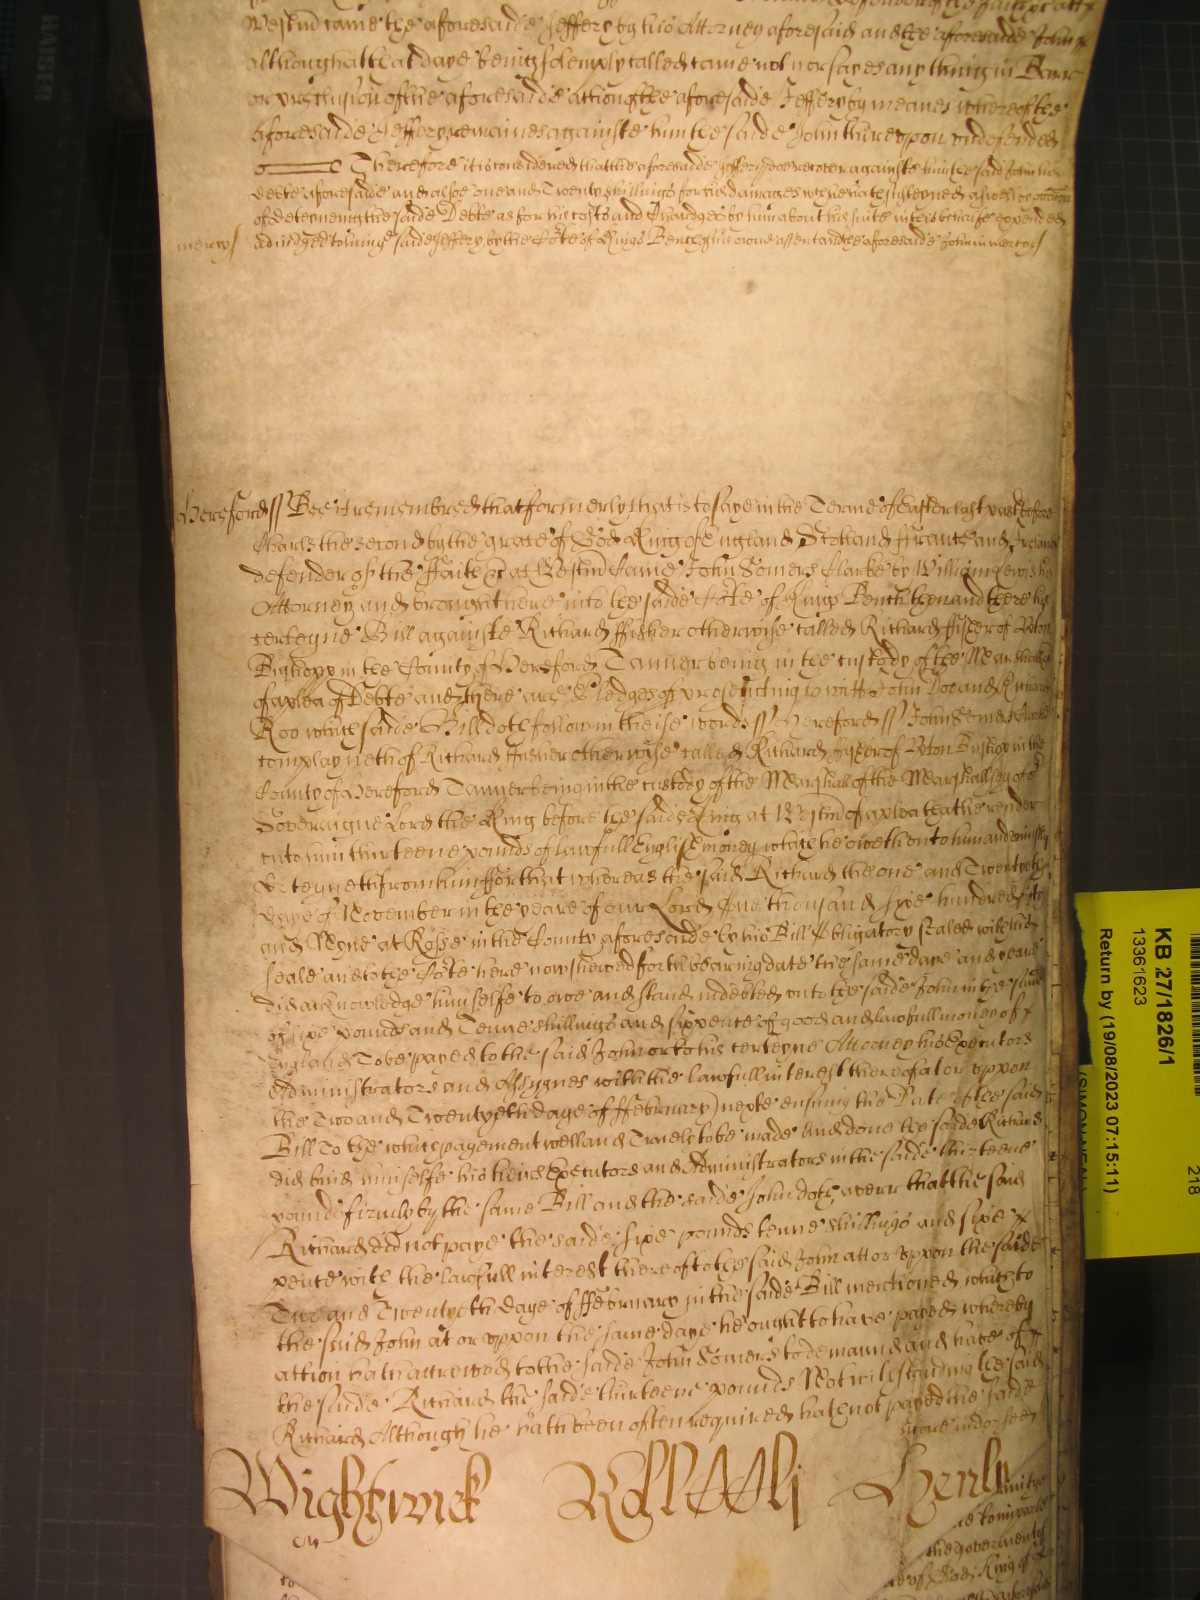 Westm came the aforesaide Jeffery by his Attorney aforesaid and the aforesaide John
although att that daye being solemply called came not nor sayes any thing in Barr
or preclusion of the aforesaide action of the aforesaide Jeffery by meanes whereof the
aforesaide Jeffery remaines againste him the saide John thereuppon undefended
Therefore it is considered that the aforesaide Jeffery doe recover againste him the said John his
debte aforesaide and alsoe one and Twenty shillings for his damages wch he hath susteyned aswell by occasion
of deteyneing the saide Debte as for his costs and Chardges by him about his suite in this behalfe expended
mercy adiudged to him the saide Jeffery by the Cort of Kings Bench by his owne assent and the aforesaide John in mercy
Hereford ss Bee it remembred that formerly that is to saye in the Terme of Easter last past before
Charles the second by the grace of God King of England Scotland ffrance and Ireland
defender of the ffaith &c at Westm Came John Somers Clarke by William his
Attorney and brought here into the saide Cort of Kings Bench then and there his
certeyne Bill againste Richard ffisher otherwise called Richard ffisher of Upton
Bishopp in the County of Hereford Tanner being in the custody of the Marshall
of a plea of Debte and there are pledges of prosecuting to witt John Doe and Richard
Roo which saide Bill doth follow in theise words ss Hereford ss John Somers Clarke
complayneth of Richard ffisher otherwise called Richard ffisher of Upton Bishop in the
County of Hereford Tanner being in the custody of the Marshall of the Marshallsey of or
Soveraigne Lord the King before the saide King at Westm of a plea that he render
unto him thirteene pounds of lawfull English money which he oweth unto him and uniustly
deteyneth from him ffor that whereas the said Richard the one and Twentyeth
daye of November in the yeare of our Lord One thousand sixe hundred fifty
and Nyne at Rosse in the County aforesaide by his Bill obligatory sealed with his
seale and to the Cort here now shewed forth bearing date the same daye and yeare
did acknowledge himselfe to owe and stand indebted unto the saide John in the sume
of sixe pounds and Tenne shillings and sixpence of good and lawfull money of
England To be payed to the said John or to his certeyne Attorney his Executors
Administrators and Assygnes with the lawfull interest thereof at or uppon
the Two and Twentyeth daye of ffebruary nexte ensuing the Date of the said
Bill To the which payement well and Truely to be made and done the saide Richard
did bind himselfe his heires Executors and Administrators in the saide thirteene
pounds firmly by the same Bill and the saide John doth averr that the said
Richard did not paye the saide sixe pounds tenne shillings and sixe
pence with the lawfull interest thereof to the said John att or uppon the saide
Two and Twentyeth daye of ffebruary in the saide Bill mentioned which to
the said John at or uppon the same daye he ought to have payed whereby
action hath accrewed to the saide John Somers to demaund and have of
the saide Richard the saide thirteene pounds Notwithstanding the said
Richard Although he hath been often required hath not payed the saide
Wightwick Henly
KB 27/1826/1
13361623
Return by (19/08/2023 07:15:11)
218